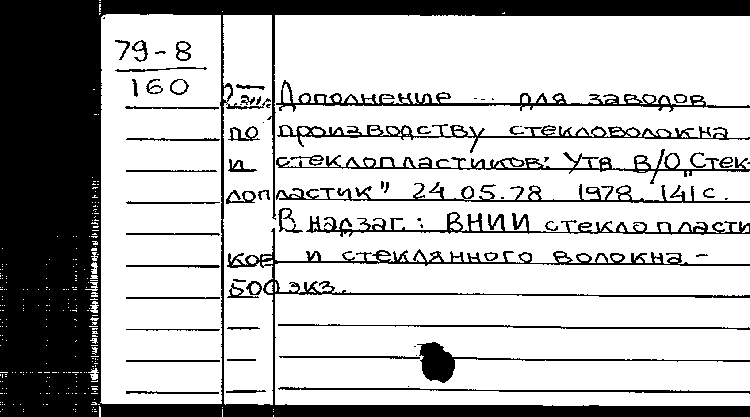 79-8
160
Дополнение ... для заводов
по производству стекловолокна
и стеклопластиков: Утв В/О „Стек-
лопластик" 24.05.78 1978. 141с.
В надзаг.: ВНИИ стеклопласти
кое и стеклянного волокна. -
500 экз.